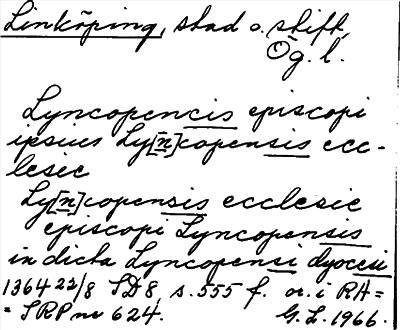 Linköping, stad o. stift,
Ög. l.
Lyncopencis episcopi
ipsius Ly[n]copensis ecc-
lesie
Ly[n]copensis ecclesie
episcopi Lyncopensis
in dicta Lyncopensi dyocesi
1364 22/8 SD 8 s. 555 f. or. i RA =
= SRP nr 624. G.L. 1966.